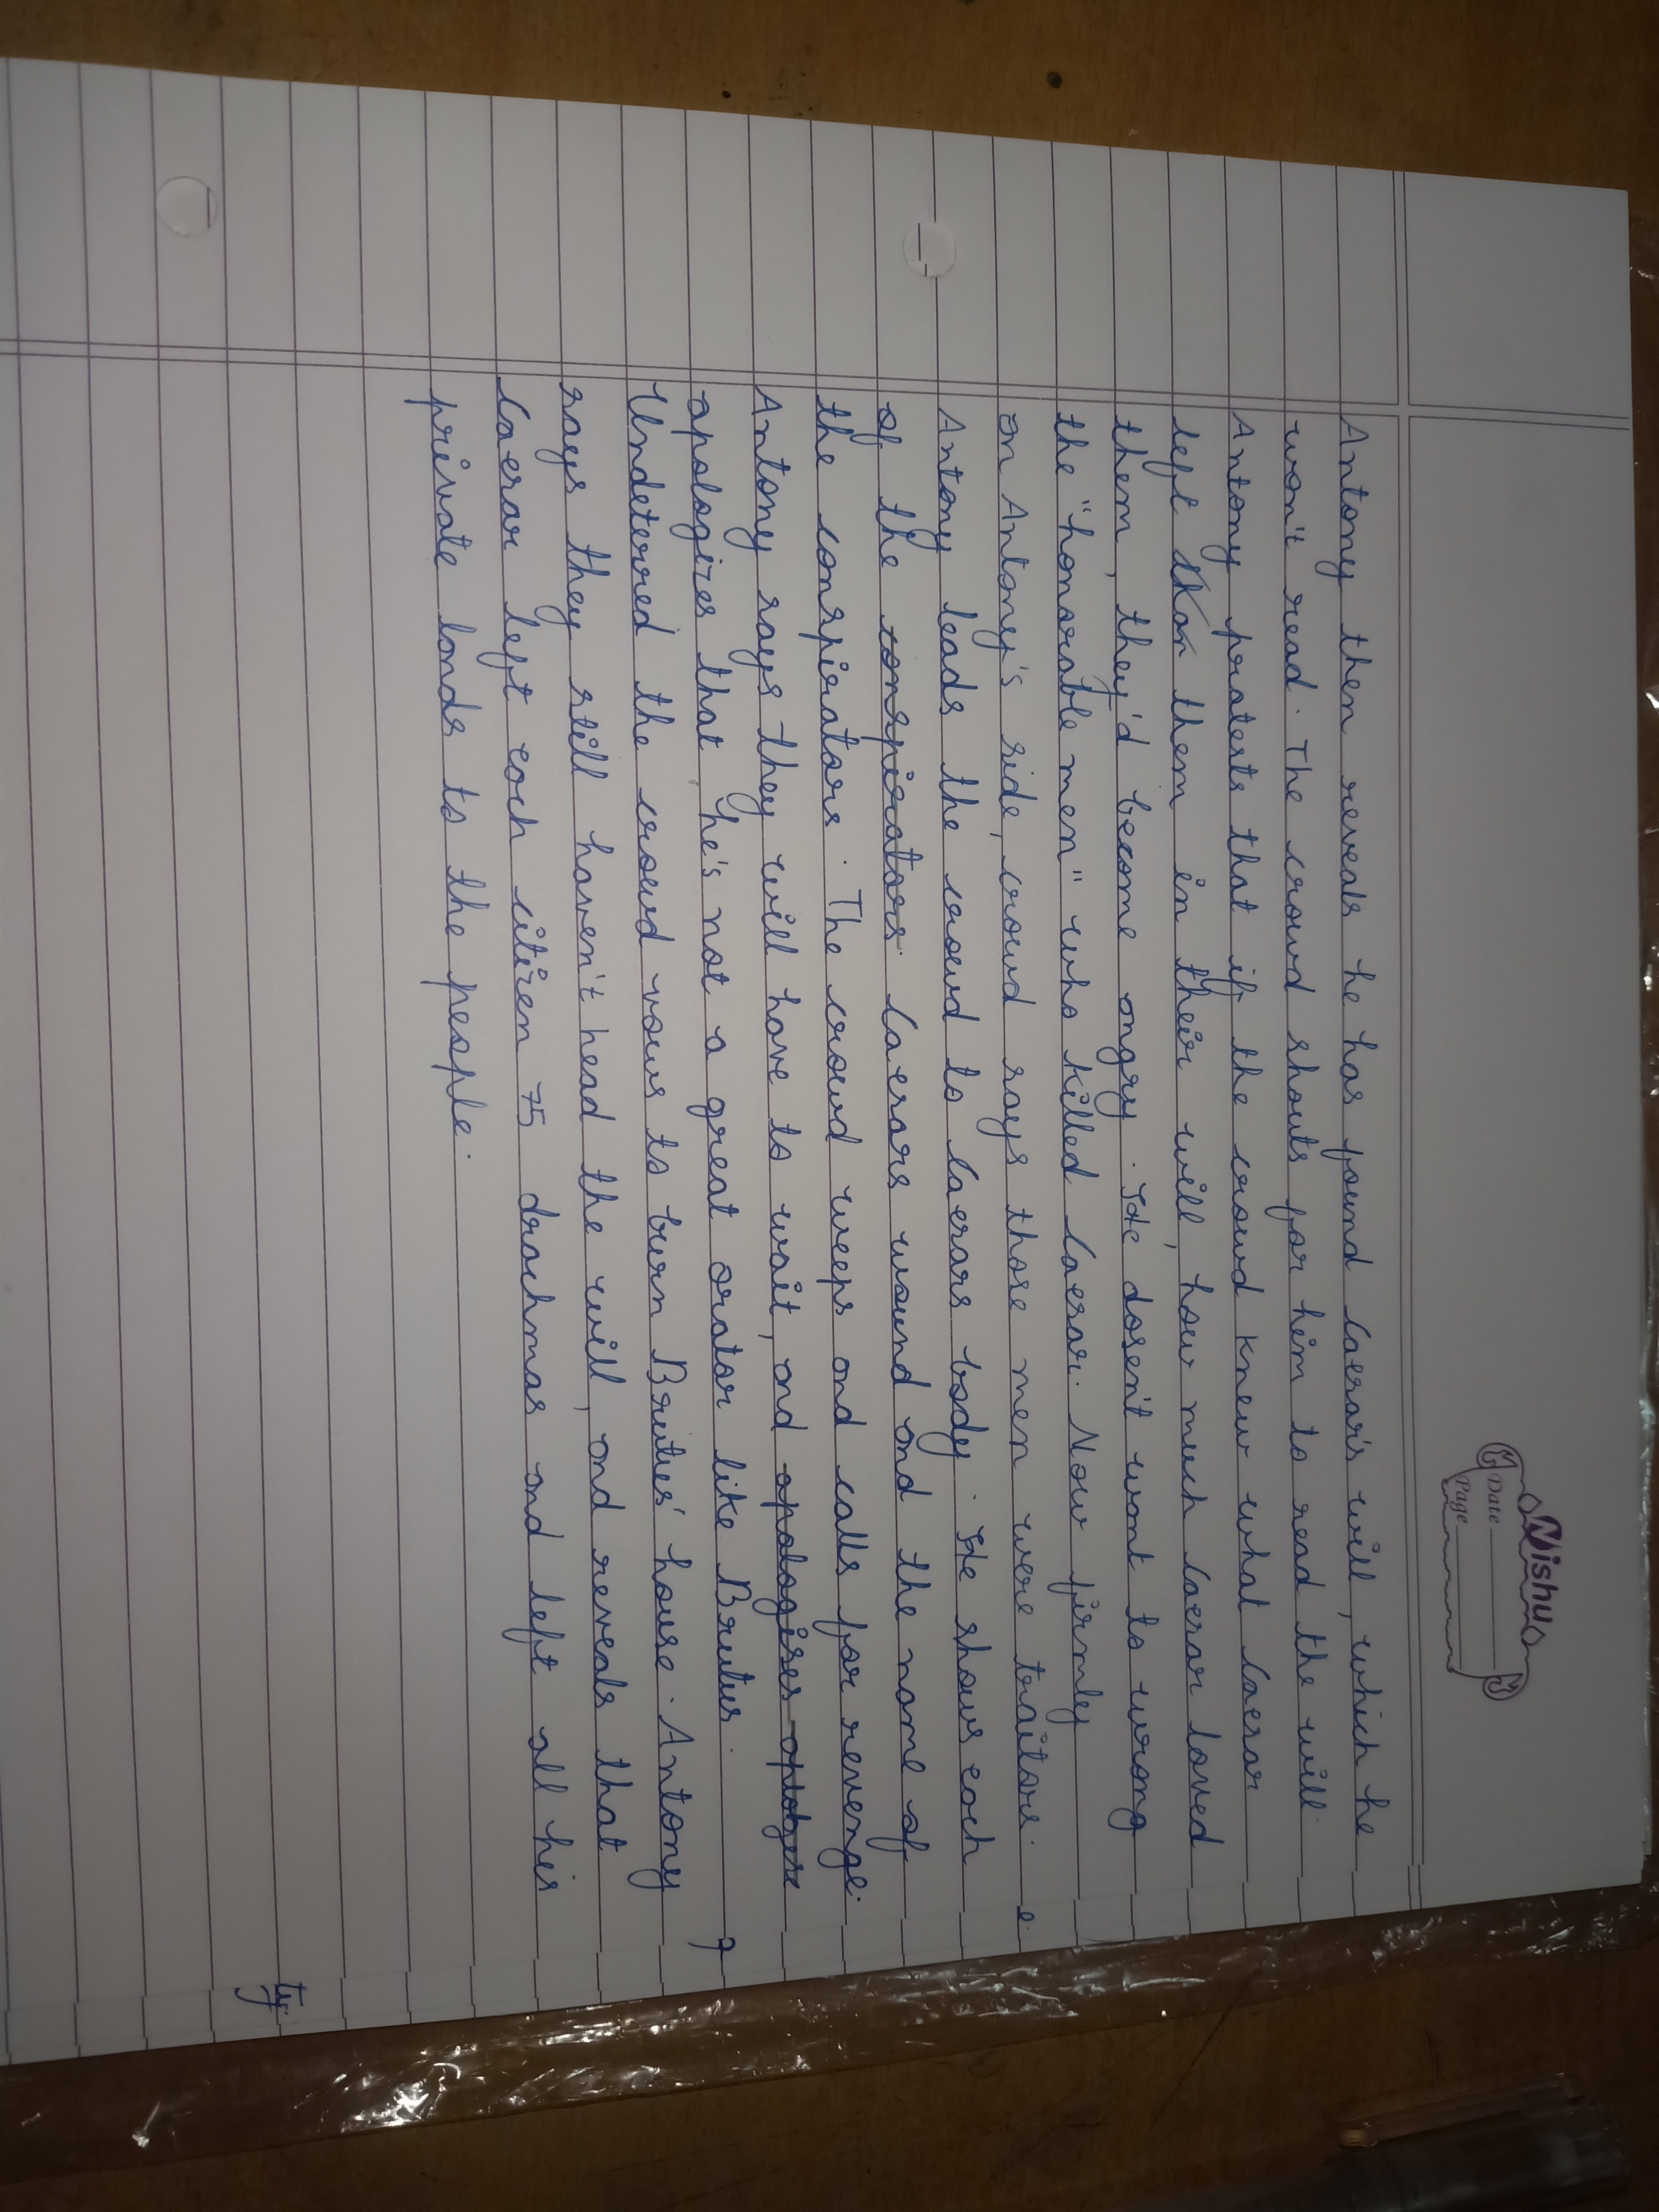 Nishu
Date
Page
Antony then reveals he has found Caesar's will, which he
won't read. The crowd shouts for him to read the will.
Antony protests that if the crowd knew what Caesar
left them in their will, how much Caesar loved
them, they'd become angry. He dosen't want to wrong
the "honorable men" who killed Caesar. Now firmly
on Antony's side, crowd says those men were traitors.
Antony leads the crowd to Caesars body. He shows each
of the conspirators. Caesars wound and the name of
the conspirators. The crowd weeps and calls for revenge.
Antony says they will have to wait, and apologises
apologizes that he's not a great orator like Brutus.
Undeterred the crowd vows to burn Brutus' house. Antony
says they still haven't head the will, and reveals that
Caesar left each citizen 75 drachmas and left all his
private lands to the people.